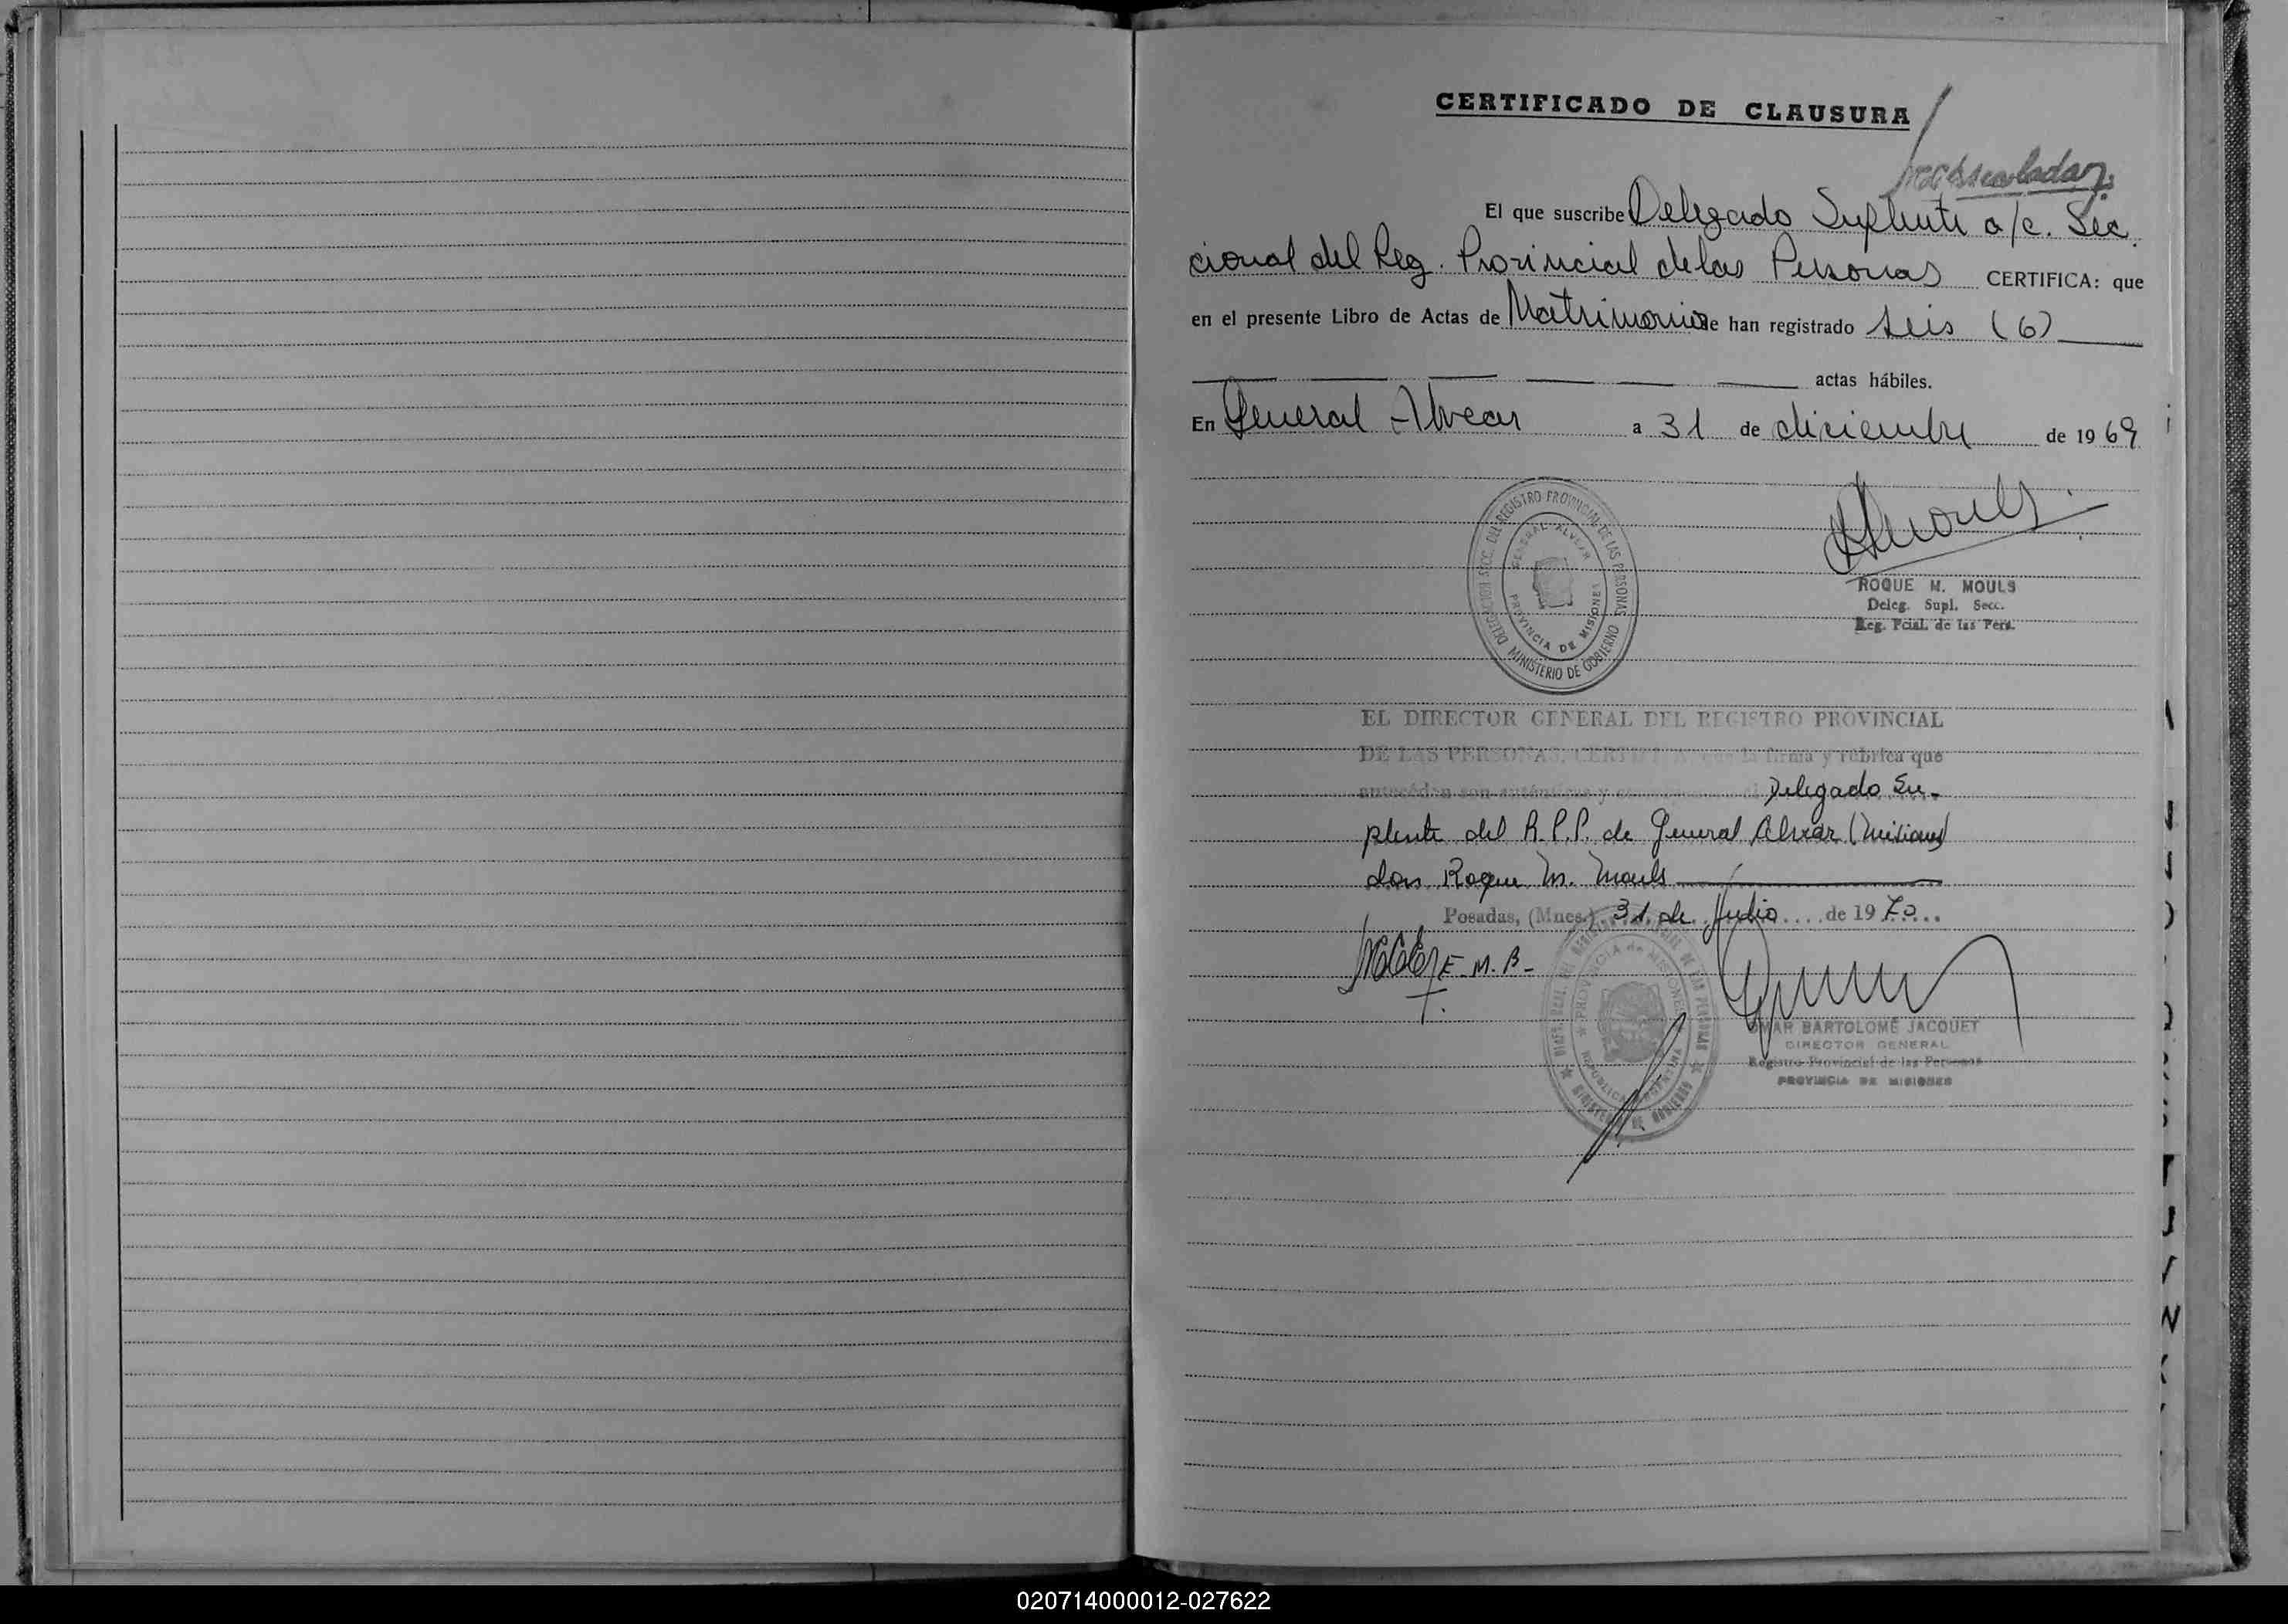 CERTIFICADO DE CLAUSURA
El que suscribe Delegado Suplente a/c. Sec
cional del Reg. Provincial de las Personas CERTIFICA: que
en el presente Libro de Actas de Matrimonios se han registrado seis (6)
actas hábiles.
En General Alvear a 31 de diciembre de 1969
DELEGACION SECC. DEL REGISTRO PROVINCIAL DE LAS PERSONAS
GENERAL ALVEAR
PROVINCIA DE MISIONES
MINISTERIO DE GOBIERNO
ROQUE M. MOULS
Deleg. Supl. Secc.
Reg. Pcial. de las Pers.
EL DIRECTOR GENERAL DEL REGISTRO PROVINCIAL
DE LAS PERSONAS, CERTIFICA que la firma y rúbrica que
anteceden son auténticas y Delegado Su-
plente del R.P.P. de General Alvear (Misiones)
don Roque M. Mouls
Posadas, (Mnes.) 31 de Julio de 1970
E.M.B-
PROVINCIA de MISIONES
REPUBLICA ARGENTINA
MINISTERIO DE GOBIERNO
OMAR BARTOLOMÉ JACQUET
DIRECTOR GENERAL
Registro Provincial de las Personas
PROVINCIA DE MISIONES
020714000012-027622